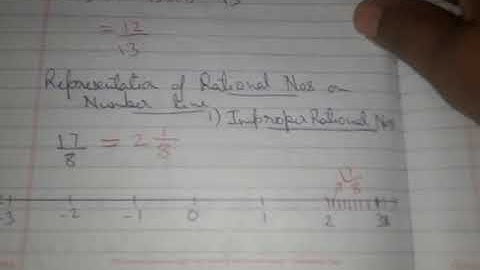 = 12/13
Representation of Rational Nos on
Number Line
i) Improper Rational Nos
17/8 = 2 1/8
-3 -2 -1 0 1 2